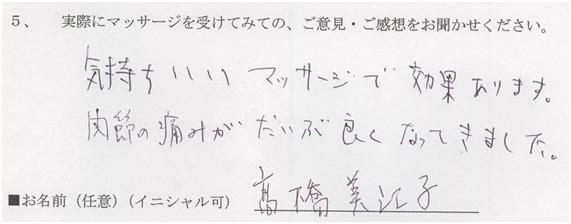 5、 実際にマッサージを受けてみての、ご意見・ご感想をお聞かせください。
気持ちいいマッサージで効果あります。
肉節の痛みがだいぶ良くなってきました。
■お名前（任意）（イニシャル可） 高橋美江子